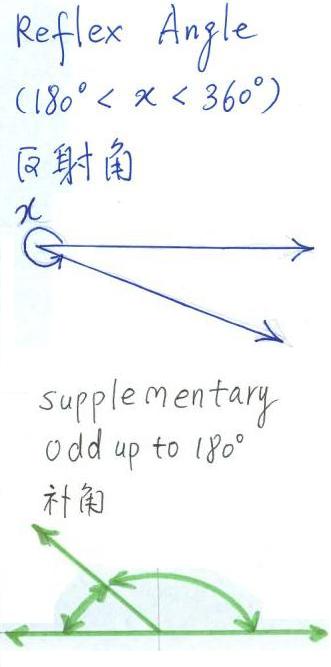 Reflex Angle
(180° < x < 360°)
反射角
x
supplementary
odd up to 180°
补角